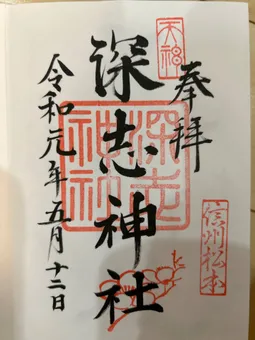 奉拝
天神
深志神社
深志神社
信州松本
令和元年五月十二日